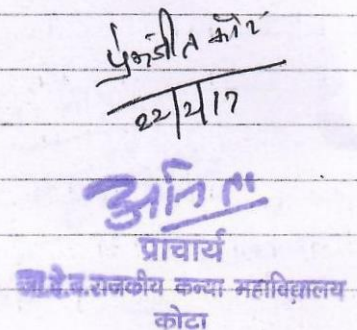 प्रेमजीत कौर
22/2/17
अनिता
प्राचार्य
जा.दे.ब.राजकीय कन्या महाविद्यालय
कोटा